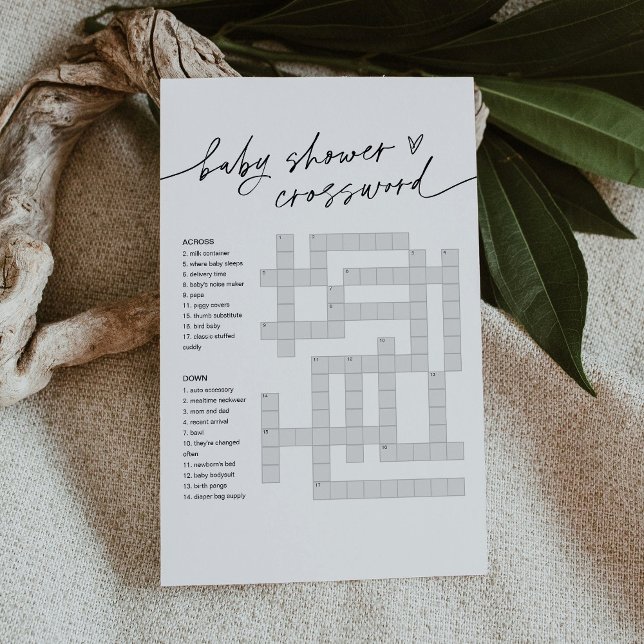 baby shower
crossword
ACROSS
2. milk container
5. where baby sleeps
6. delivery time
8. baby's noise maker
9. papa
11. piggy covers
15. thumb substitute
16. bird baby
17. classic stuffed
cuddly
DOWN
1. auto accessory
2. mealtime neckwear
3. mom and dad
4. recent arrival
7. bawl
10. they're changed
often
11. newborn's bed
12. baby bodysuit
13. birth pangs
14. diaper bag supply